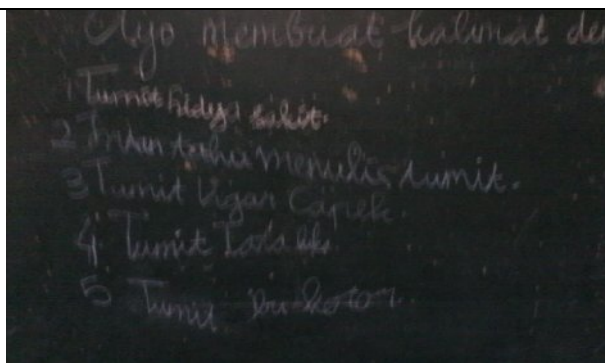 Ayo Membuat kalimat de
1 Tumit hidya sakit.
2 tahu menulis tumit.
3 Tumit Vigar Capek.
4. Tumit
5 Tumit bu kotor.